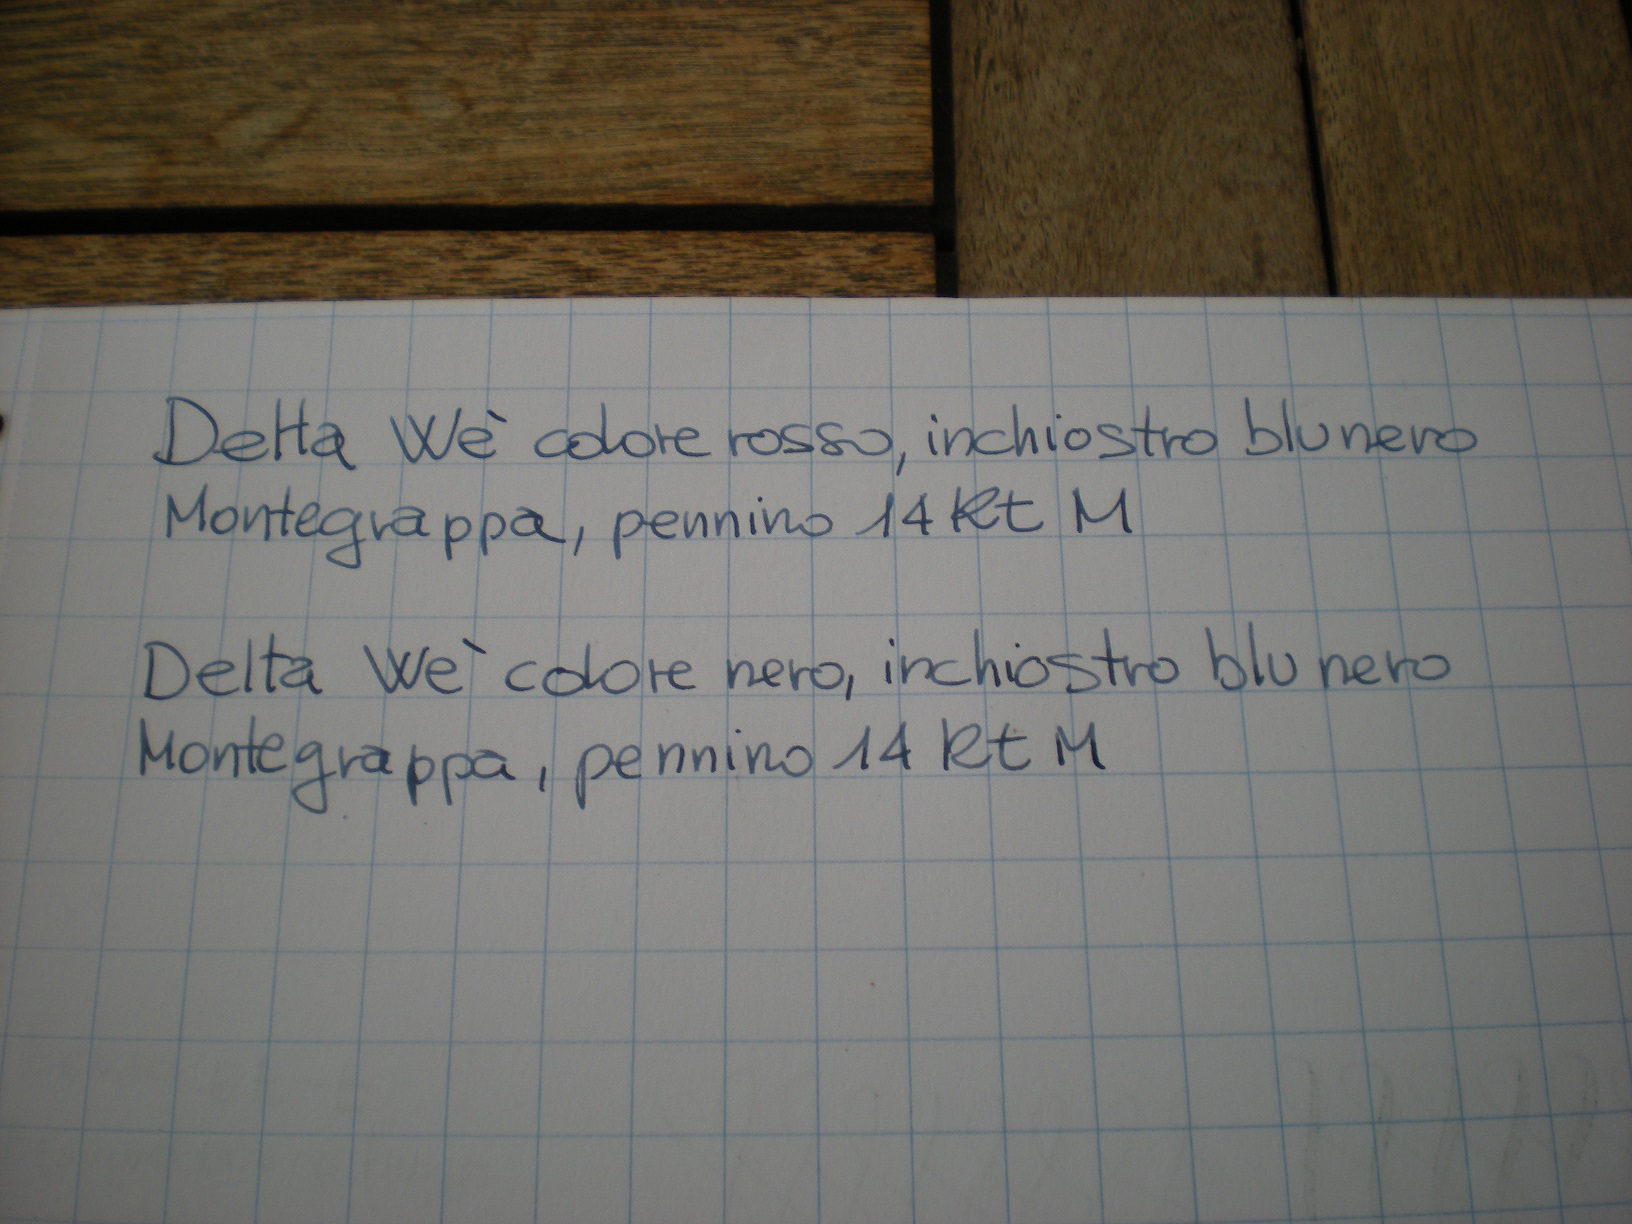 Delta Wè colore rosso, inchiostro blu nero
Montegrappa, pennino 14 Kt M
Delta Wè colore nero, inchiostro blu nero
Montegrappa, pennino 14 Kt M